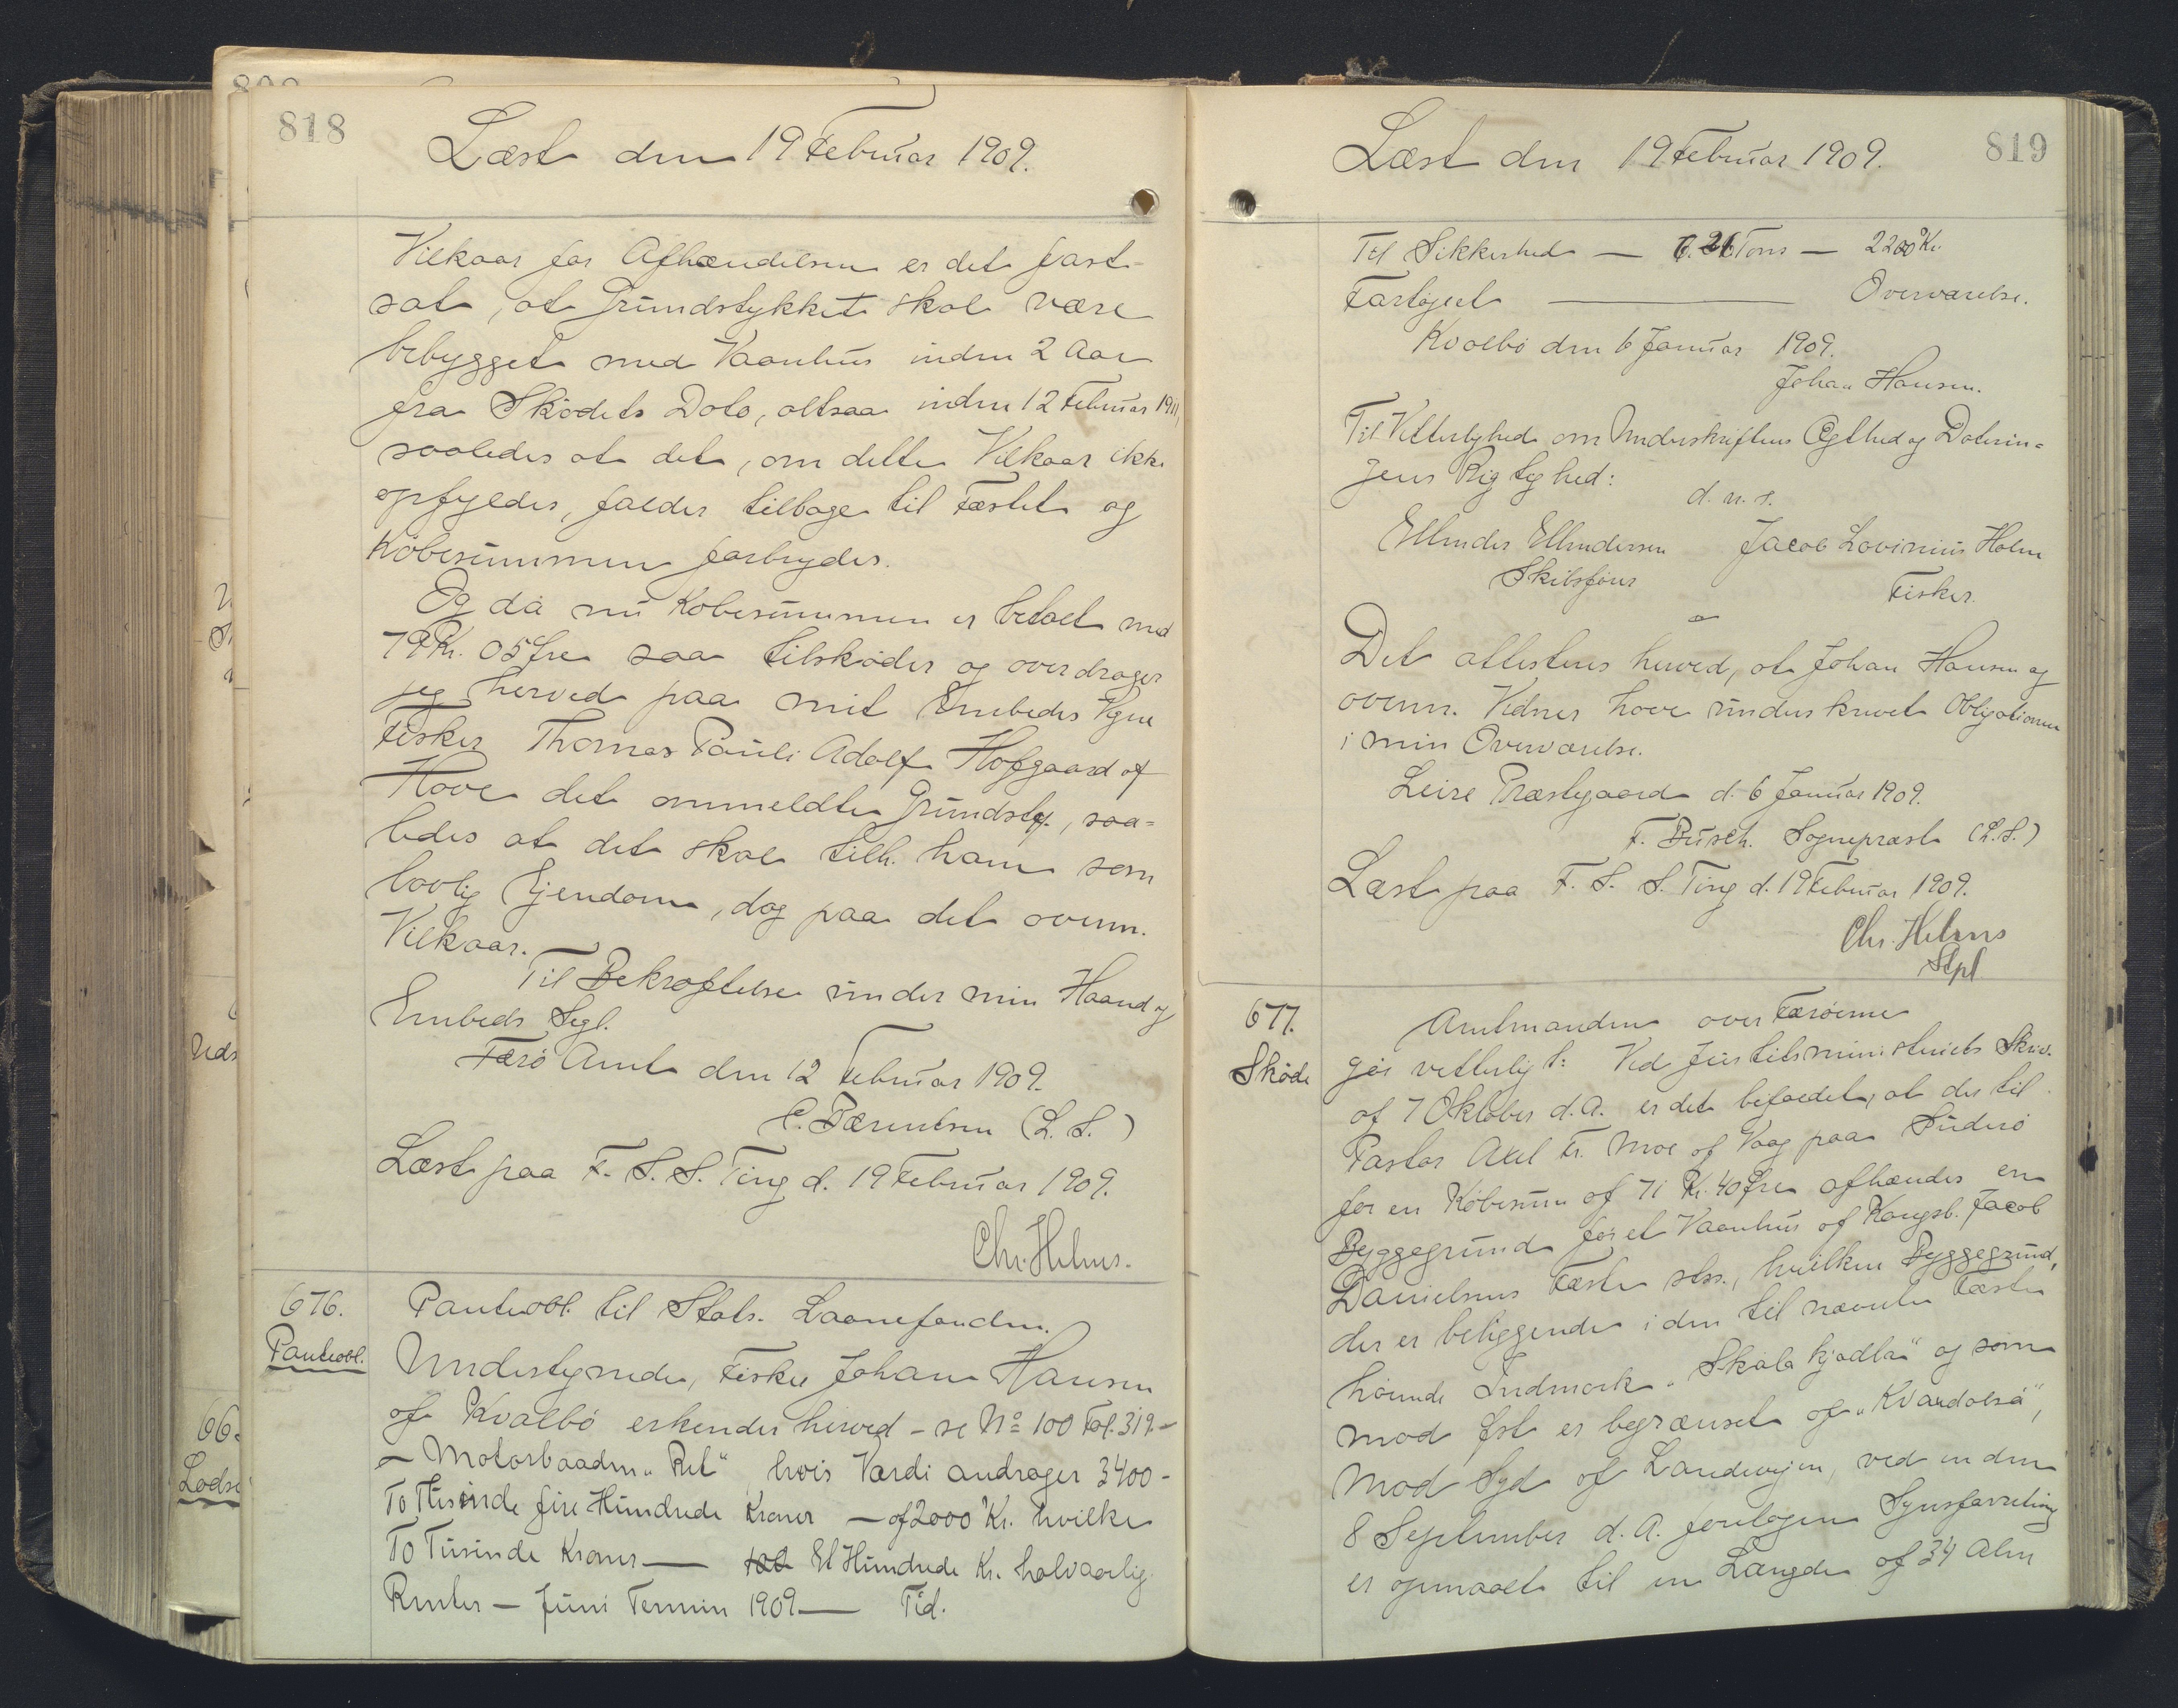 818
Læst den 19 Februar 1909.
Vilkaar for Afhændelsen er det fast-
sat, at Grundstykket skal være
bebygget med Vaanhus inden 2 Aar
fra Skødets Dato, altsaa inden 12 Februar 1911,
saaledes at det, om dette Vilkaar ikke
opfyldes, falder tilbage til Fæstet og
Købesummen forbrydes.
Og da nu Købesummen er betalt med
79 Kr. 05 Øre saa tilskøder og overdrager
jeg herved paa mit Embedes Vegne
Fisker Thomas Pauli Adolf Hofgaard af
Hove det ommeldte Grundst., saa-
ledes at det skal tilh. ham som
lovlig Ejendom, dog paa det ovenn.
Vilkaar.
Til Bekræftelse under min Haand og
Embeds Segl.
Færø Amt den 12 Februar 1909.
C. Bærentsen (L. S.)
Læst paa F. S. S. Ting d. 19 Februar 1909.
Chr. Helms.
676.
Panteobl.
Panteobl. til Stats. Laanefonden.
Undertegnede, Fisker Johan Hansen
af Kvalbø erkender herved - se No 100 Fol. 319. -
- Motorbaaden "Rut" hvis Værdi andrager 3400 -
To Tusinde fire Hundrede Kroner - af 2000 Kr. hvilke
To Tusinde Kroner — 100 Et Hundrede Kr. halvaarlig
Renter - Juni Termin 1909 — Tid.
819
Læst den 19 Februar 1909.
Til Sikkerhed — 6.26 Tons — 2200 Kr.
Fartøjet — Overværelse.
Kvalbø den 6 Januar 1909.
Johan Hansen.
Til Vitterlighed om Underskriftens Ægthed og Daterin-
gens Rigtighed:
d. u. s.
Ellinder Ellindersen Jacob Lovinius Holm
Skibsfører Fisker.
Det attesteres herved, at Johan Hansen og
ovenn. Vidner have underskrevet Obligationen
i min Overværelse.
Leire Præstegaard d. 6 Januar 1909.
F. Busch. Sognepræst (L. S.)
Læst paa F. S. S. Ting d. 19 Februar 1909.
Chr. Helms
677.
Skøde
Amtmanden over Færøerne
gør vitterligt: Ved Justitsministeriets Skriv.
af 7 Oktober d. A. er det befalet, at der til
Pastor Axel Fr. Moe af Vaag paa Suderø
for en Købesum af 71 Kr. 40 Øre afhændes en
Byggegrund for et Vaanhus af Kongsb. Jacob
Danielsens Fæste sts., hvilken Byggegrund,
der er beliggende i den til nævnte Fæste
hørende Indmark "Skálakjadla" og som
mod Øst er begrænset af "Kvardalsá",
mod Syd af Landevejen, ved en den
8 September d. A. foretagen Synsforretning
er opmaalt til en Længde af 34 Alen